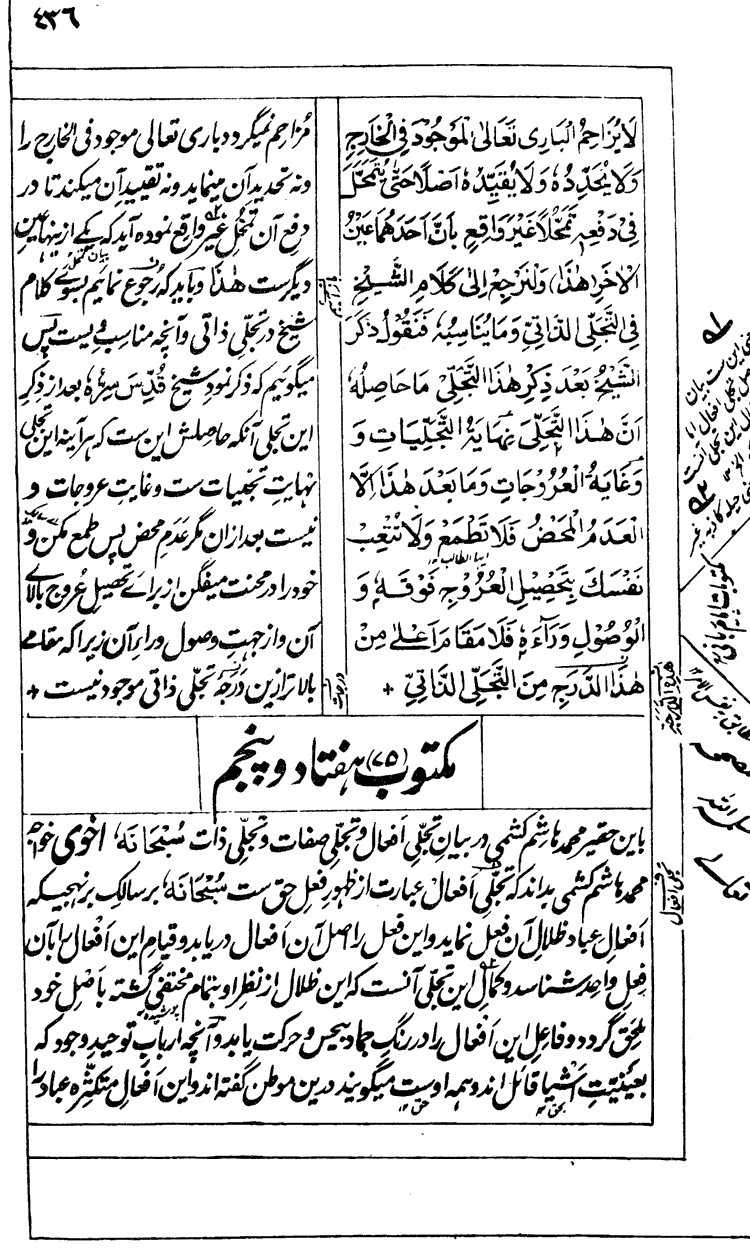 ٤٣٦
لَا يُزَاحِمُ الْبَارِى تَعَالٰى الْمَوْجُوْدَ فِى الْخَارِجِ
وَلَا يُحَدِّدُهٗ وَلَا يُقَيِّدُهٗ اَصْلًا حَتّٰى يُتَمَحَّلَ
فِىْ دَفْعِهٖ تَمَحُّلًا غَيْرَ وَاقِعٍ بِاَنَّ اَحَدَهُمَا عَيْنُ
الْاٰخَرِ (هٰذَا) وَلْنَرْجِعْ اِلٰى كَلَامِ الشَّيْخِ
فِى التَّجَلِّى الذَّاتِىِّ وَمَا يُنَاسِبُهٗ فَنَقُوْلُ ذَكَرَ
الشَّيْخُ بَعْدَ ذِكْرِ هٰذَا التَّجَلِّىْ مَا حَاصِلُهٗ
اَنَّ هٰذَا التَّجَلِّىَ نِهَايَةُ التَّجَلِّيَاتِ وَ
وَغَايَةُ الْعُرُوْجَاتِ وَمَا بَعْدَ هٰذَا اِلَّا
الْعَدَمُ الْمَحْضُ فَلَا تَطْمَعْ وَلَا تُتْعِبْ
نَفْسَكَ بِتَحْصِيْلِ الْعُرُوْجِ فَوْقَهٗ وَ
الْوُصُوْلِ وَرَآءَهٗ فَلَا مَقَامَ اَعْلٰى مِنْ
هٰذَا الدَّرَجِ مِنَ التَّجَلِّى الذَّاتِىِّ +
مُزاحم نمیگردد باری تعالی موجود فی الخارج را
ونه تحدید آن مینماید ونه تقیید آن میکند تا در
دفع آن تمحّل غیر واقع نموده آید که یکے ازینها عین
دیگرست هٰذا و باید که رجوع نمایم بسوئے کلام
شیخ در تجلّی ذاتی وآنچه مناسب ویست پس
میگوییم که ذکر نمود شیخ قُدِّسَ سِرُّهٗ بعد از ذکر
این تجلی آنکه حاصلش این ست که هر آینه این تجلی
نهایتِ تجلیات ست وغایتِ عروجات و
نیست بعد ازان مگر عدم محض پس طمع مکن و
خود را در محنت میفگن از برائے تحصیل عُروج بالائے
آن و از جهتِ وصول وراءِ آن زیرا که مقامے
بالاتر ازین درجهٔ تجلّی ذاتی موجود نیست +
مکتوب (۷۵) هفتاد و پنجم
باین حقیر محمد هاشم کشمی در بیانِ تجلّی اَفعال وتجلّی صفات وتجلّی ذات سُبْحَانَهٗ، اخوی خواجه
محمد هاشم کشمی بداند که تجلّی اَفعال عبارت از ظهورِ فعلِ حق ست سُبْحَانَهٗ، بر سالک بر نهجیکه
اَفعالِ عباد ظلالِ آن فعل نماید و این فعل را اصلِ آن اَفعال دریابد و قیامِ این اَفعال را بآن
فعلِ واحد شناسد و کمالِ این تجلی آنست که این ظلال از نظرِ او بتمام مختفی گشته باَصلِ خود
ملحق گردد و فاعلِ این اَفعال را در رنگِ جماد بیحس وحرکت یابد و آنچه اربابِ توحیدِ وجود که
بعینیّتِ اَشیا قائل اند و همه اوست میگویند درین موطن گفته اند و این اَفعالِ متکثّرهٔ عباد را
تجلّی افعال
مکتوبات امام ربانی